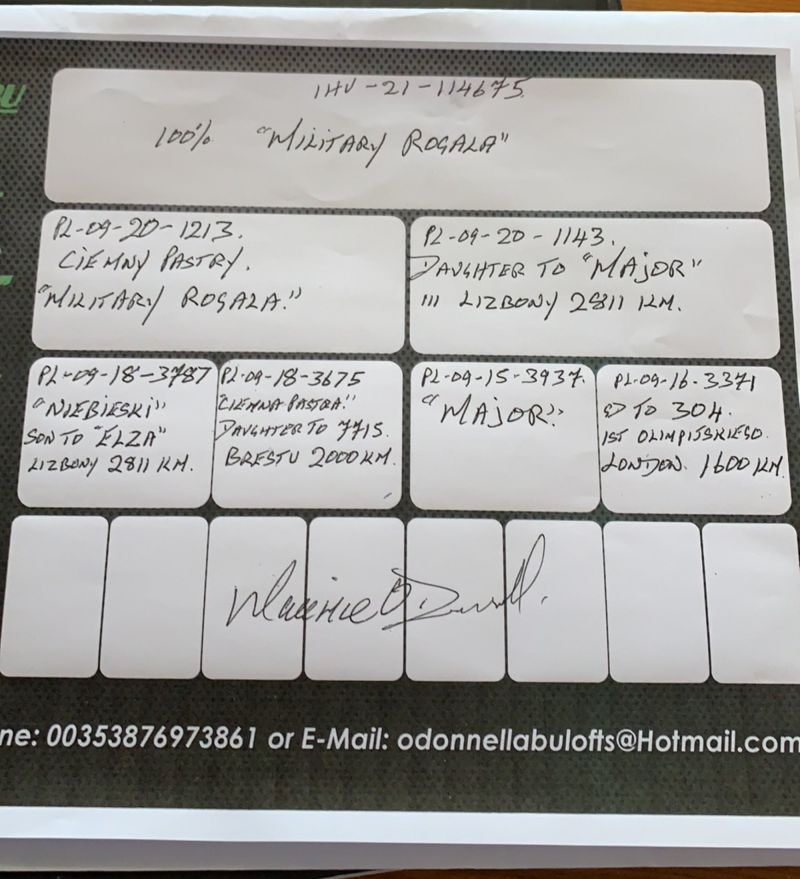 BU
IHU-21-114675
100% "MILITARY ROGALA"
PL-09-20-1213.
CIEMNY PASTRY.
"MILITARY ROGALA."
PL-09-20-1143.
DAUGHTER TO "MAJOR"
111 LIZBONY 2811 KM.
PL-09-18-3787
"NIEBIESKI"
SON TO "ELZA"
LIZBONY 2811 KM.
PL-09-18-3675
CIEMNA PASTRA."
DAUGHTER TO 7715.
BRESTU 2000KM.
PL-09-15-3937.
"MAJOR".
PL-09-16-3371
TO 304.
1ST OLIMPIJSKIEGO.
LONDON. 1600 KM.
Maurice O'Donnell.
ne: 00353876973861 or E-Mail: odonnellabulofts@Hotmail.com